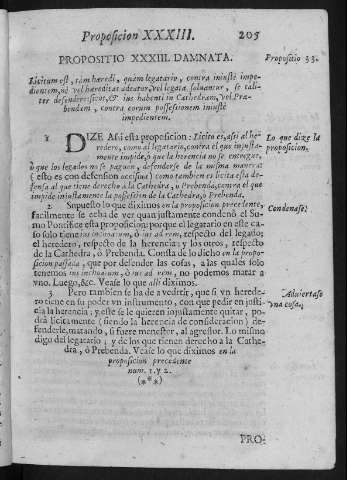 Proposicion XXXIII. 205
PROPOSITIO XXXIII. DAMNATA.
Propositio 33.
Licitum est, tam hæredi, quàm legatario, contra iniustè impe-
dientem, nè vel hæreditas adeatur, vel legata soluantur, se tali-
ter defendere: sicut, & ius habenti in Cathedram, vel Præ-
bendam, contra eorum possessionem iniustè
impedientem.
1 DIZE Assi esta proposicion: Licito es, assi al he-
redero, como al legatario, contra el que injusta-
mente impide, ò que la herencia no se entregue,
ò que los legados no se paguen, defenderse de la misma manera:
( esto es con defension occisiua) como tambien es licita esta de-
fensa al que tiene derecho à la Cathedra, u Prebenda, contra el que
impide injustamente la possession de la Cathedra, ò Prebenda.
Lo que dize la
proposicion.
2 Supuesto lo que diximos en la proposicion precedente,
facilmente se echa de ver quan justamente condenó el Su-
mo Pontifice esta proposicion; porque el legatario en este ca-
so solo tiene ius inchoatum, ò ius ad rem, respecto del legado;
el heredero, respecto de la herencia; y los otros, respecto
de la Cathedra, ò Prebenda. Consta de lo dicho en la propo-
sicion passada, que por defender las cosas, a las quales solo
tenemos ius inchoatum, ò ius ad rem, no podemos matar a
vno. Luego, &c. Vease lo que alli diximos.
Condenase.
3 Pero tambien se ha de advertir, que si vn herede-
ro tiene en su poder vn instrumento, con que pedir en justi-
cia la herencia; y este se le quieren injustamente quitar, po-
drá licitamente (siendo la herencia de consideracion) de-
fenderle, matando, si fuere menester, al agressor. Lo mismo
digo del legatario; y de los que tienen derecho a la Cathe-
dra, ò Prebenda. Vease lo que diximos en la
proposicion precedente
num. 1. y 2.
(***)
Adviertase
vna cosa.
PRO-